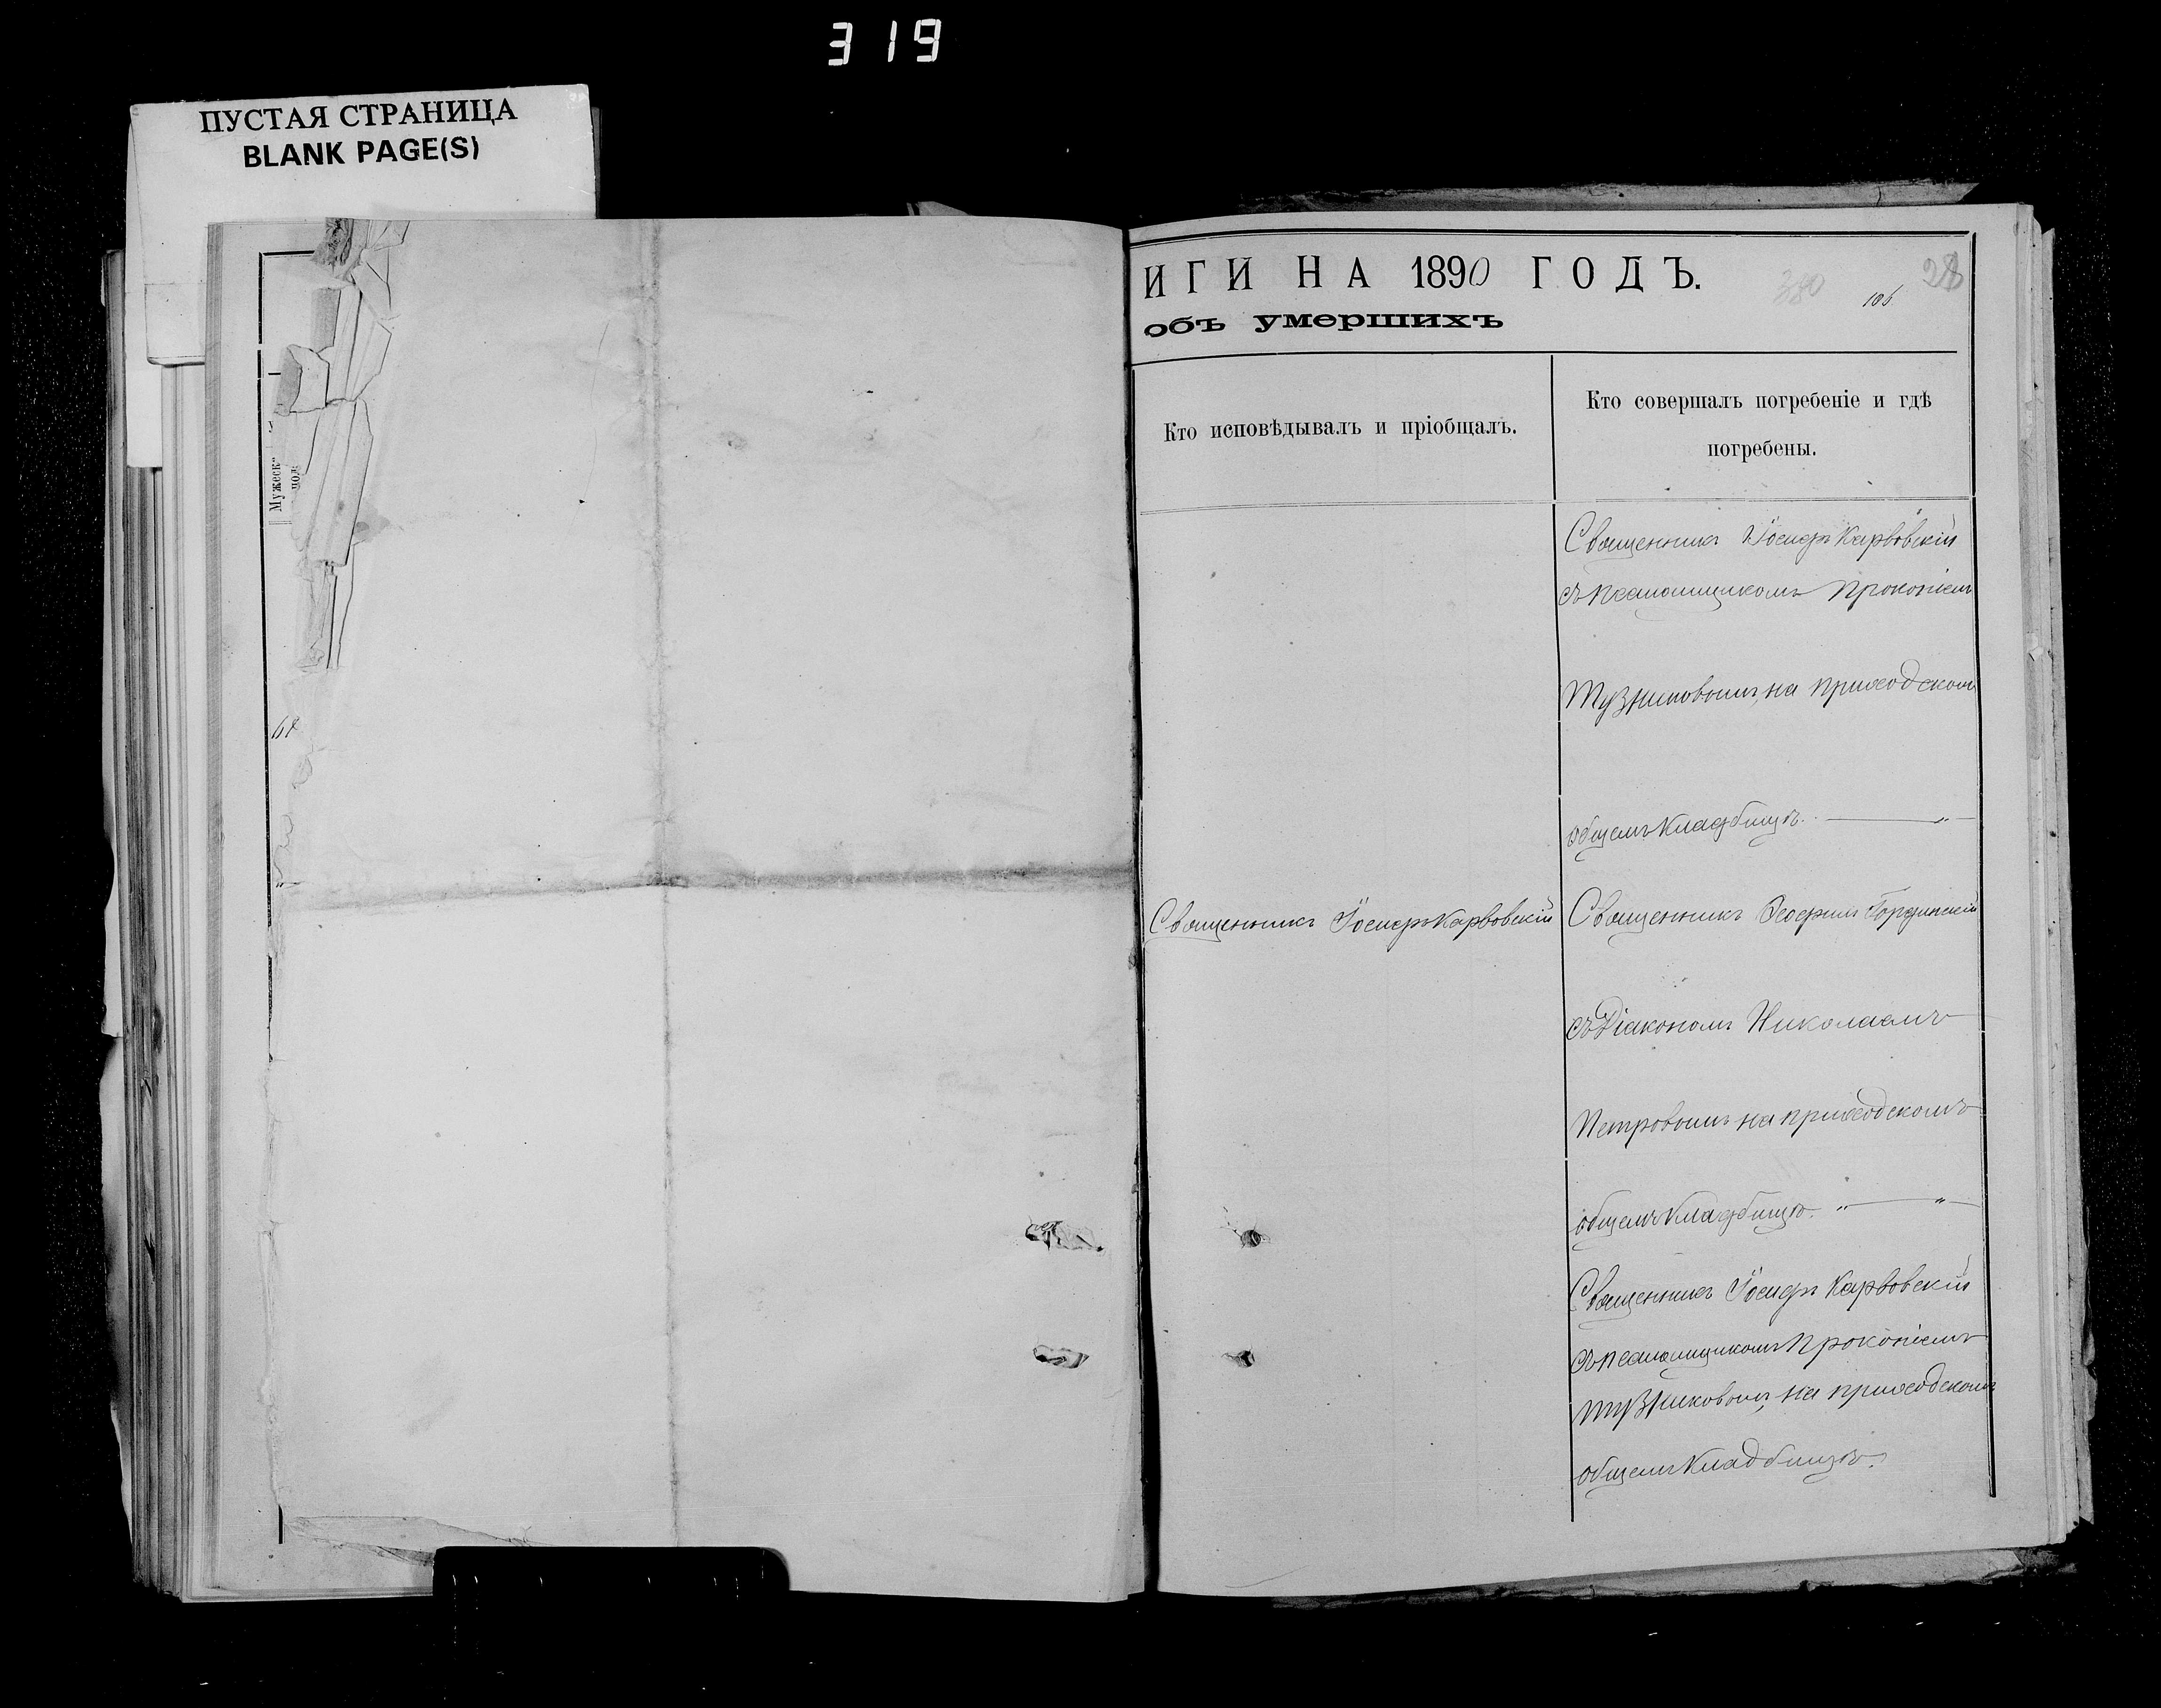 319
ПУСТАЯ СТРАНИЦА
BLANK PAGE(S)
Мужеск.
пол
ИГИ НА 1890 ГОДЪ.
380
106
28
объ умершихъ
Кто исповѣдывалъ и пріобщалъ.
Кто совершалъ погребеніе и гдѣ
погребены.
Священникъ Іосифъ Карвовскій
съ псаломщикомъ Прокопіемъ
Тузниковымъ, на приходскомъ
общемъ кладбищѣ. — „ —
Священникъ Іосифъ Карвовскій
Священникъ Ѳеофилъ Гордынскій
съ Діакономъ Николаемъ
Петровымъ на приходскомъ
общемъ кладбищѣ. „ — „ —
Священникъ Іосифъ Карвовскій
съ псаломщикомъ Прокопіемъ
Тузниковымъ, на приходскомъ
общемъ кладбищѣ.